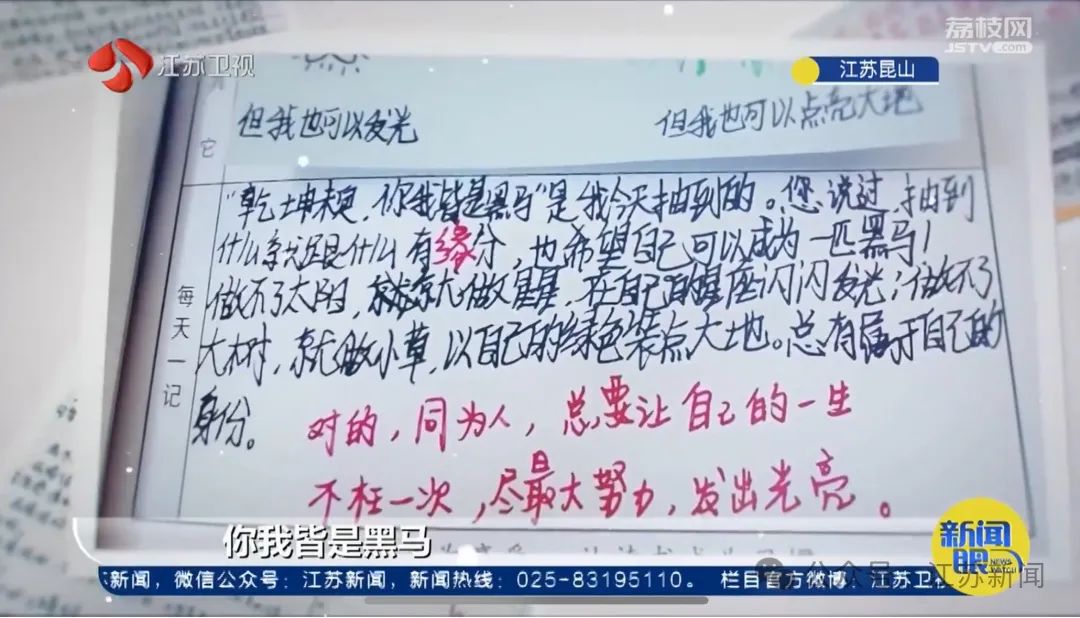 荔枝网
JSTV.com
江苏卫视
江苏昆山
它
但我也可以发光
但我也可以点亮大地
每天一记
“乾坤未定，你我皆是黑马”是我今天抽到的。您说过，抽到
什么就跟什么有缘分，也希望自己可以成为一匹黑马！
做不了太阳，就做星星，在自己的星座闪闪发光；做不了
大树，就做小草，以自己的绿色装点大地。总有属于自己的
身份。
对的，同为人，总要让自己的一生
不枉一次，尽最大努力，发出光亮。
你我皆是黑马
新闻眼
NEWS WATCH
苏新闻，微信公众号：江苏新闻，新闻热线：025-83195110。 栏目官方微博：江苏卫视
公众号·江苏新闻